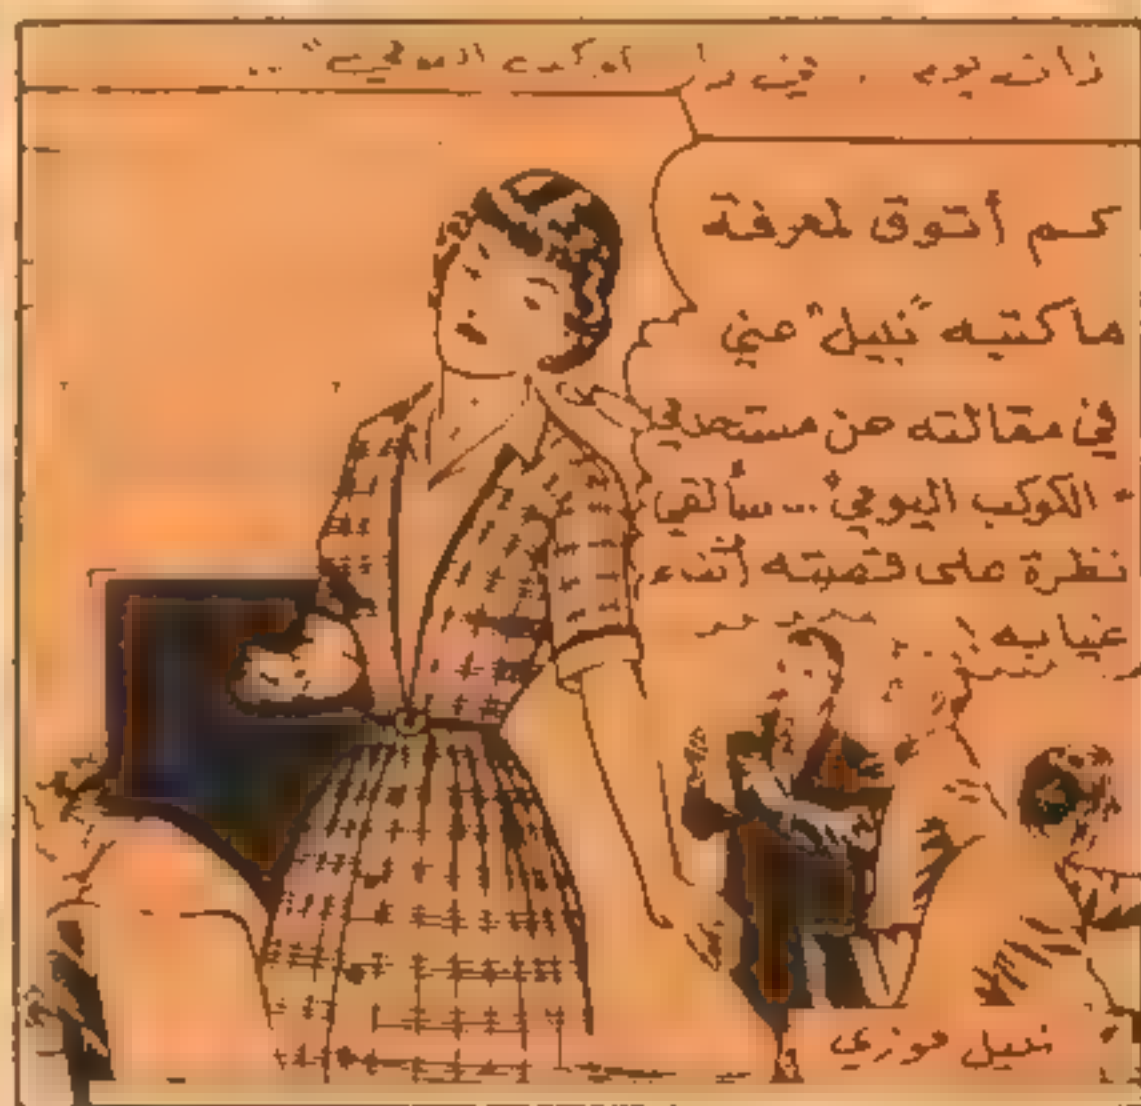 ذات يوم . في
كم أتوق لمعرفة
ما كتبه "نبيل" عني
في مقالته عن مستعدي
الكوكب اليومي ... سألقي
نظرة على قصته أثناء
غيابه
نبيل فوزي